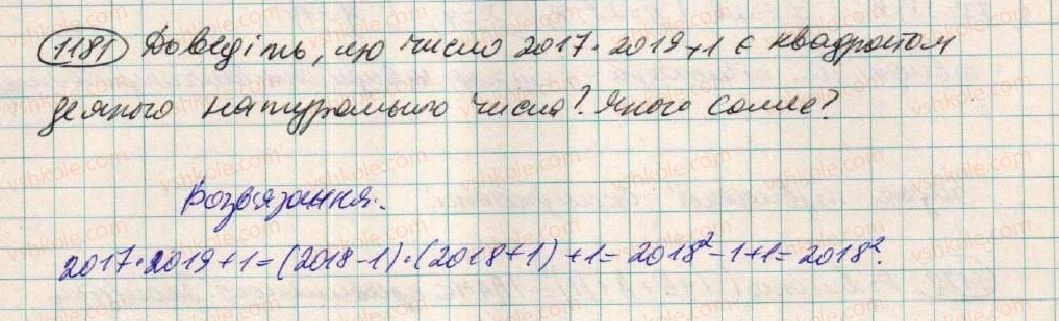 1181 Доведіть, що число 2017·2019+1 є квадратом
деякого натурального числа? Якого саме?
Розв'язання.
2017·2019+1=(2018-1)·(2018+1)+1=2018²-1+1=2018².